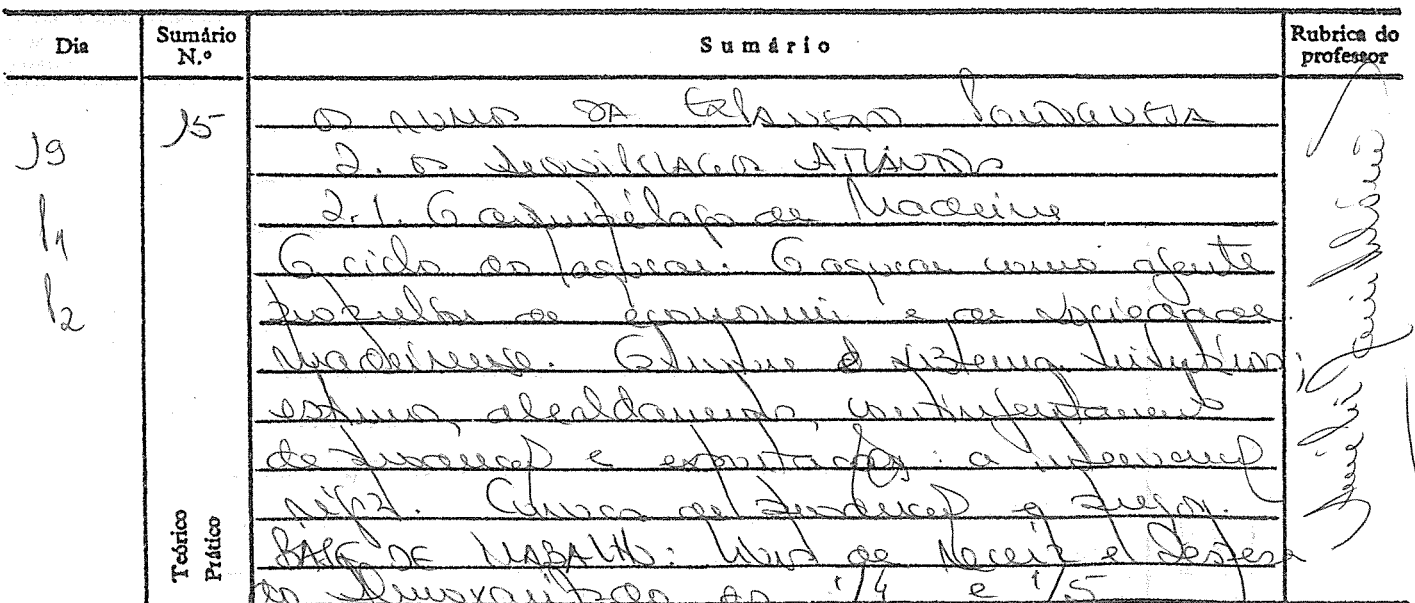 Dia Sumário N.º Sumário Rubrica do professor
19 15 Os rumos da Expansão Portuguesa
2. Os Arquipélagos Atlânticos
2.1. O arquipélago da Madeira
O ciclo do açúcar: O açúcar como agente
propulsor da economia e da sociedade
madeirense. O sistema tributário:
estimo, alealdamento, contingentamento
de produção e exportação: a intervenção
régia. Curvas de produção e preços.
BASE DE TRABALHO: Livros de Receita e Despesa
do Almoxarifado
Teórico
Prático